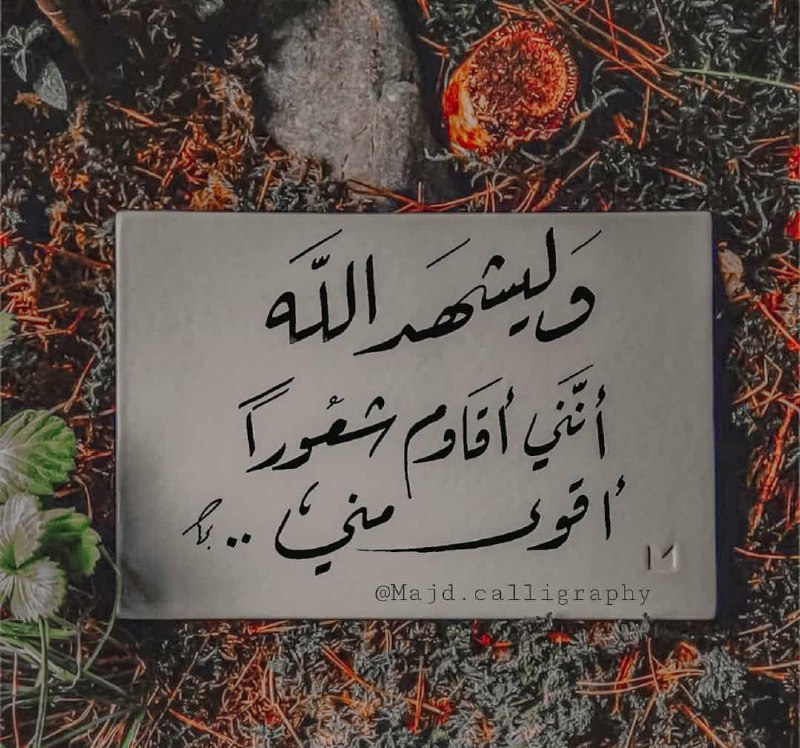 وَليشهَد اللَّه
أنَّني أقَاوم شعُوراً
أقوى مني ..
@Majd.calligraphy